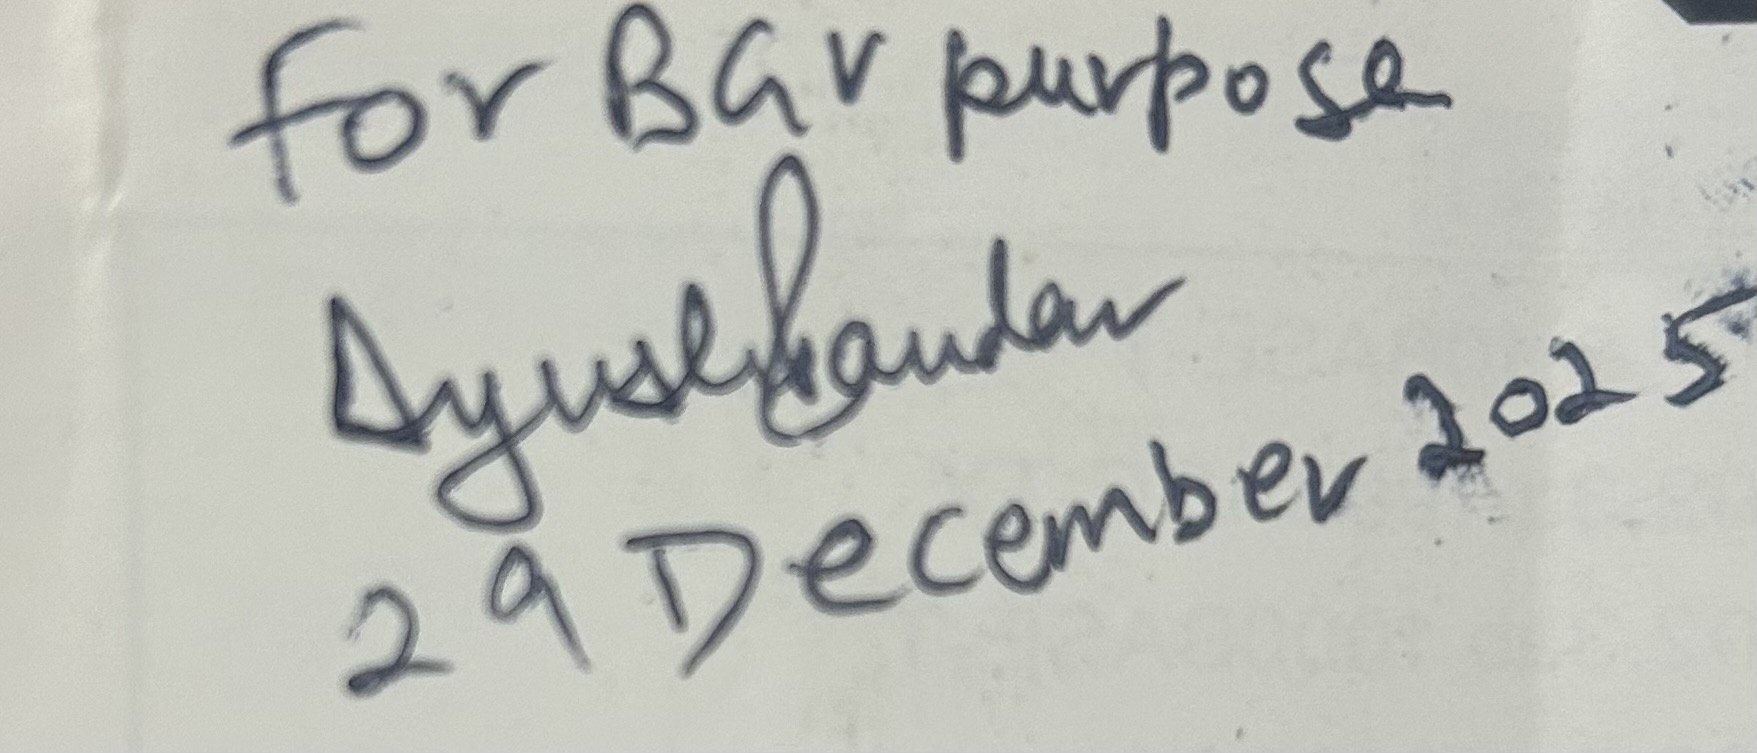 For BGV purpose
Ayush
29 December 2025